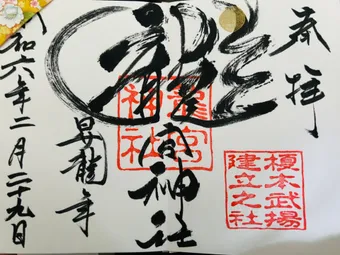 奉拝
龍宮神社
龍宮神社
榎本武揚
建立之社
昇龍年
令和六年二月二十九日